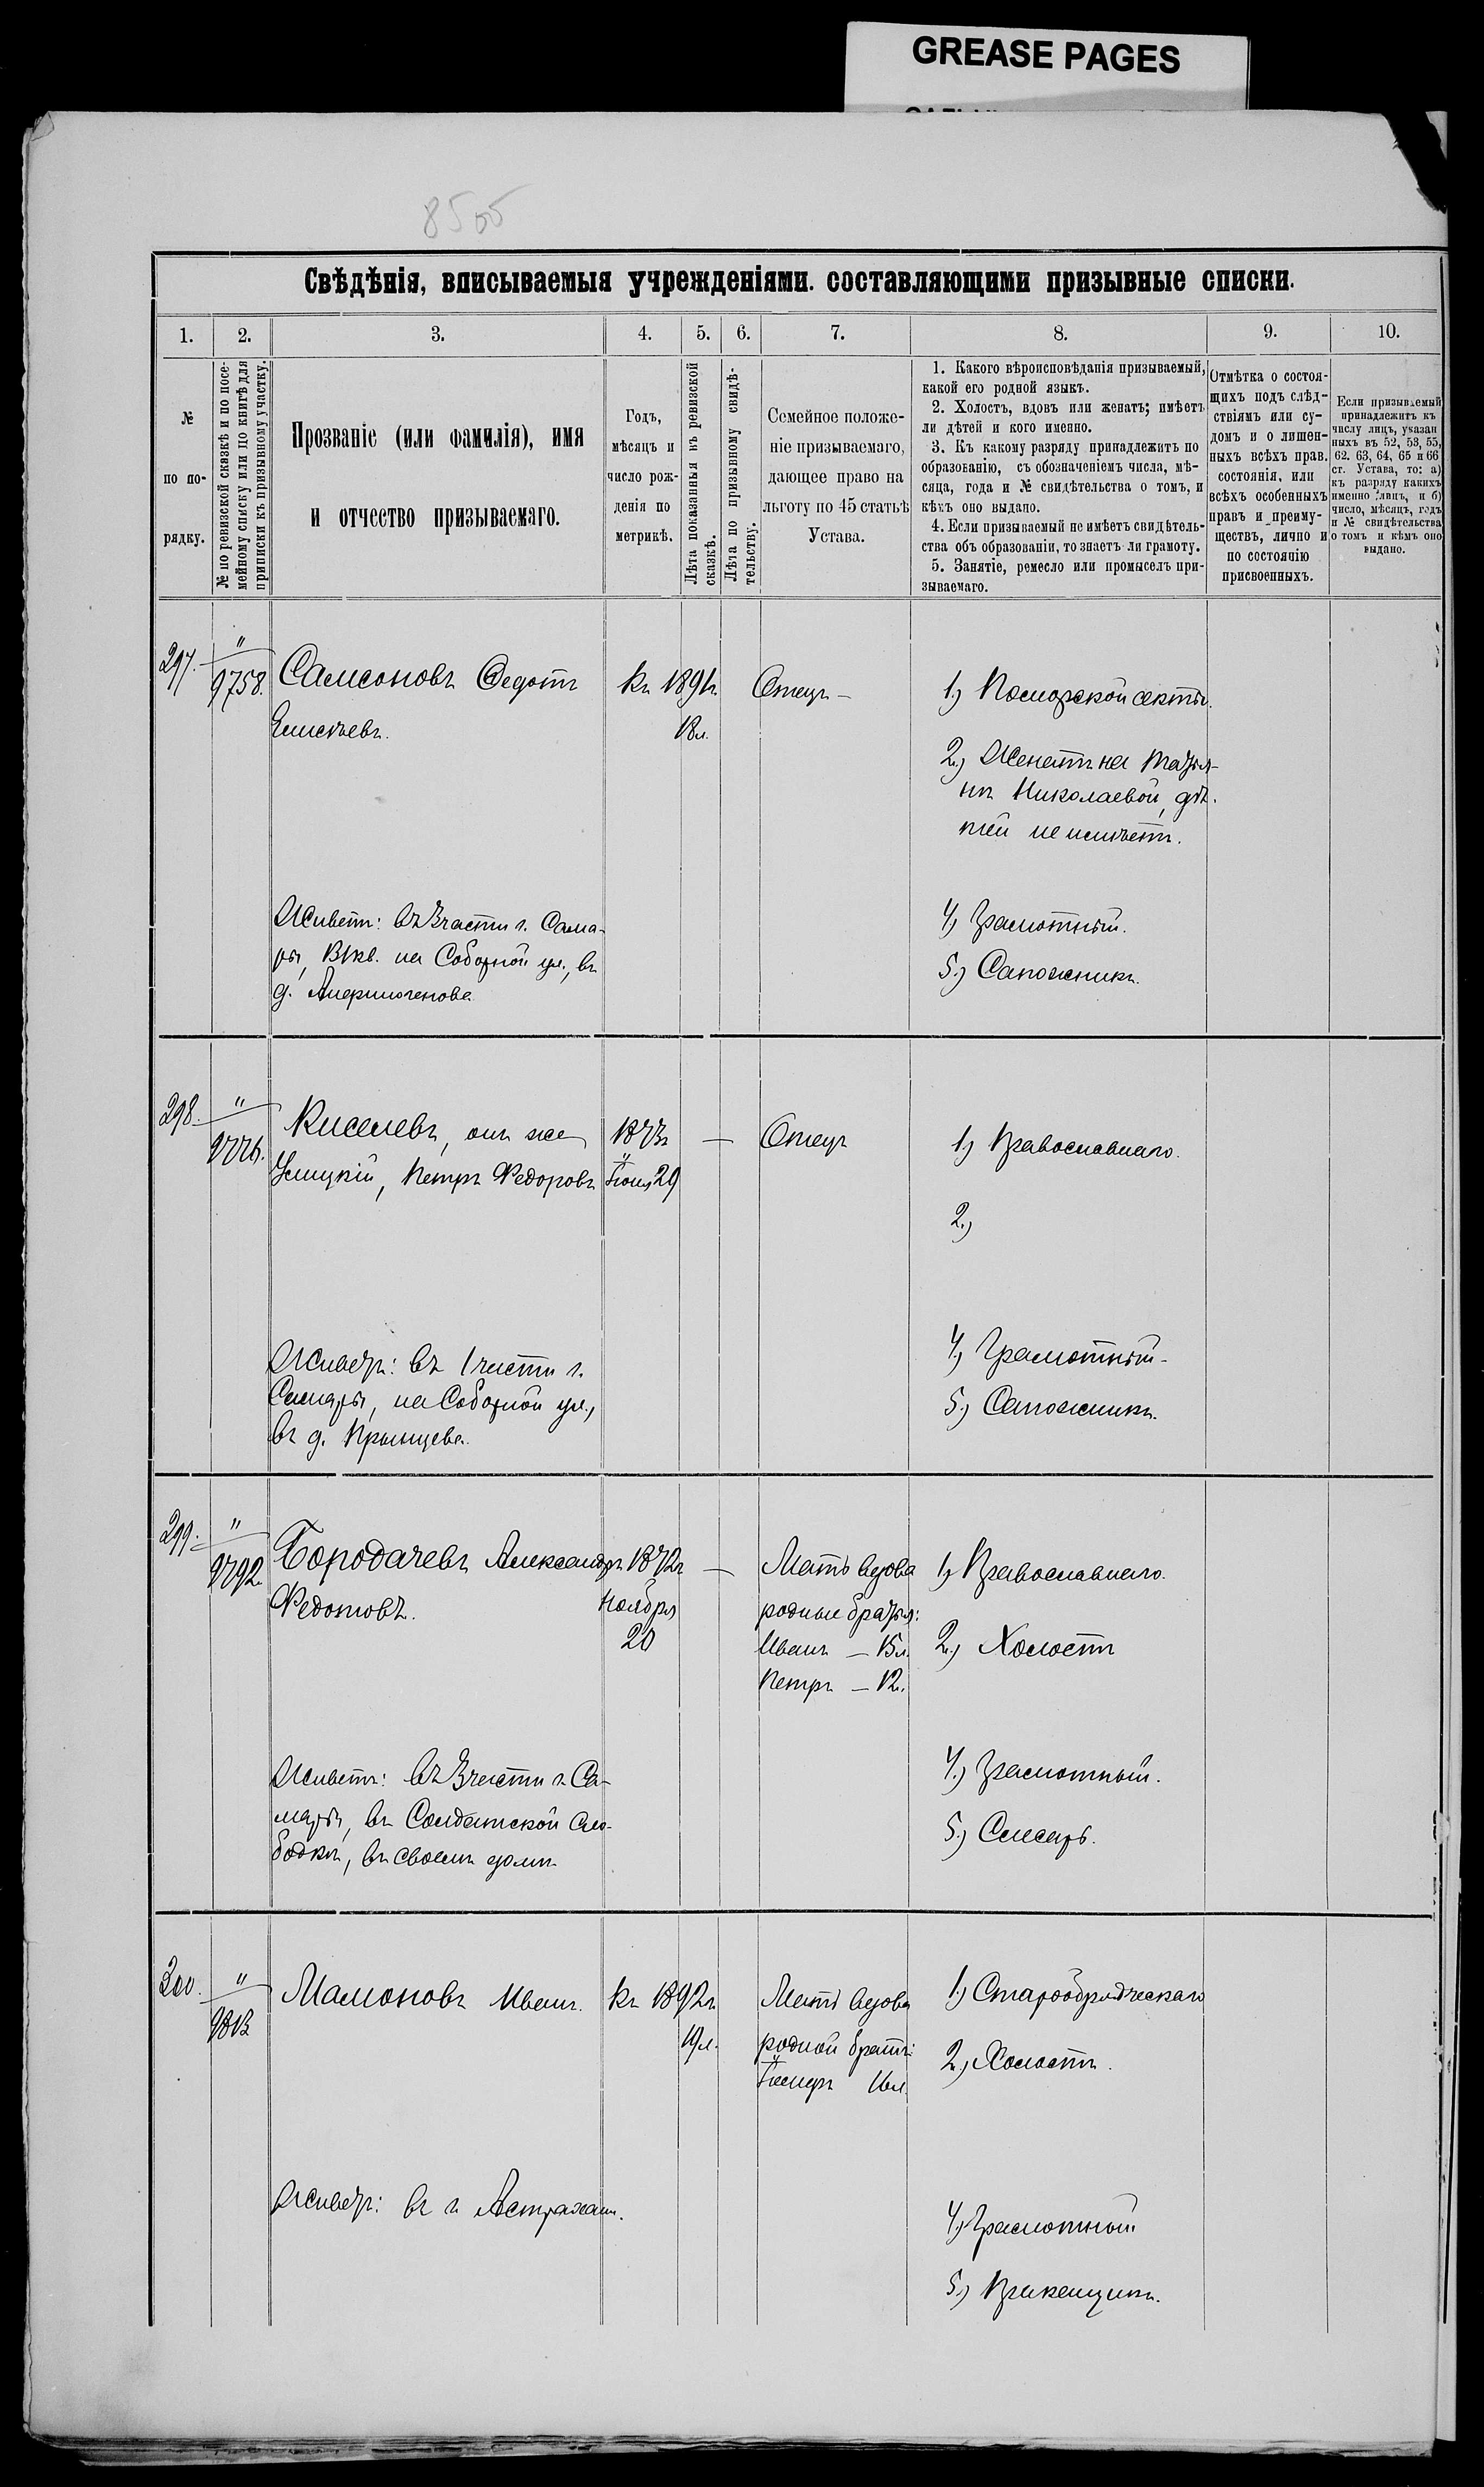 GREASE PAGES
8505
Свѣдѣнія, вписываемыя учрежденіями. составляющими призывные списки.
1. 2. 3. 4. 5. 6. 7. 8. 9. 10.
№
по по-
рядку.
№ по ревизской сказкѣ и по посе-
мейному списку или по книгѣ для
приписки къ призывному участку.
Прозваніе (или фамилія), имя
и отчество призываемаго.
Годъ,
мѣсяцъ и
число рож-
денія по
метрикѣ.
Лѣта показанныя въ ревизской
сказкѣ.
Лѣта по призывному свидѣ-
тельству.
Семейное положе-
ніе призываемаго,
дающее право на
льготу по 45 статьѣ
Устава.
1. Какого вѣроисповѣданія призываемый,
какой его родной языкъ.
2. Холостъ, вдовъ или женатъ; имѣетъ
ли дѣтей и кого именно.
3. Къ какому разряду принадлежитъ по
образованію, съ обозначеніемъ числа, мѣ-
сяца, года и № свидѣтельства о томъ, и
кѣмъ оно выдано.
4. Если призываемый не имѣетъ свидѣтель-
ства объ образованіи, то знаетъ ли грамоту.
5. Занятіе, ремесло или промыселъ при-
зываемаго.
Отмѣтка о состоя-
щихъ подъ слѣд-
ствіямъ или су-
домъ и о лишен-
ныхъ всѣхъ прав.
состоянія, или
всѣхъ особенныхъ
правъ и преиму-
ществъ, лично и
по состоянію
присвоенныхъ.
Если призываемый
принадлежитъ къ
числу лицъ, указан
ныхъ въ 52, 53, 55,
62. 63, 64, 65 и 66
ст. Устава, то: а)
къ разряду какихъ
именно лицъ, и б)
число, мѣсяцъ, годъ
и № свидѣтельства
о томъ и кѣмъ оно
выдано.
297. "
9758.
Самсоновъ Федотъ
Елисѣевъ.
Къ 1891г.
18л.
Отецъ —
1.) Поморской секты.
2.) Женатъ на Татья-
нѣ Николаевой, дѣ-
тей не имѣетъ.
Живетъ: въ 3 части г. Сама-
ры, 81 кв. на Соборной ул., въ
д.
4.) Грамотный.
5.) Сапожникъ.
298. "
9776.
Киселевъ, онъ же
Усицкій, Петръ Федоровъ
1873г
Іюня 29
—
Отецъ
1.) Православнаго.
2.)
Живетъ: въ 1 части г.
Самары, на Соборной ул.,
въ д.
4.) Грамотный.
5.) Сапожникъ.
299. "
9792.
Бородачевъ Александръ
Федотовъ.
1872г
Ноября
20
—
Мать вдова
родные братья:
Иванъ — 15л.
Петръ — 12.
1.) Православнаго.
2.) Холостъ
Живетъ: въ 3 части г. Са-
мары, въ Солдатской Сло-
бодкѣ, въ своемъ домѣ
4.) Грамотный.
5.) Слесарь.
300. "
9813
Мамоновъ Иванъ.
Къ 1892г.
19л.
Мать вдова
родной братъ:
16л.
1.) Старообрядческаго
2.) Холостъ.
Живетъ: въ г. Астрахани.
4.) Грамотный
5.) Прикащикъ.